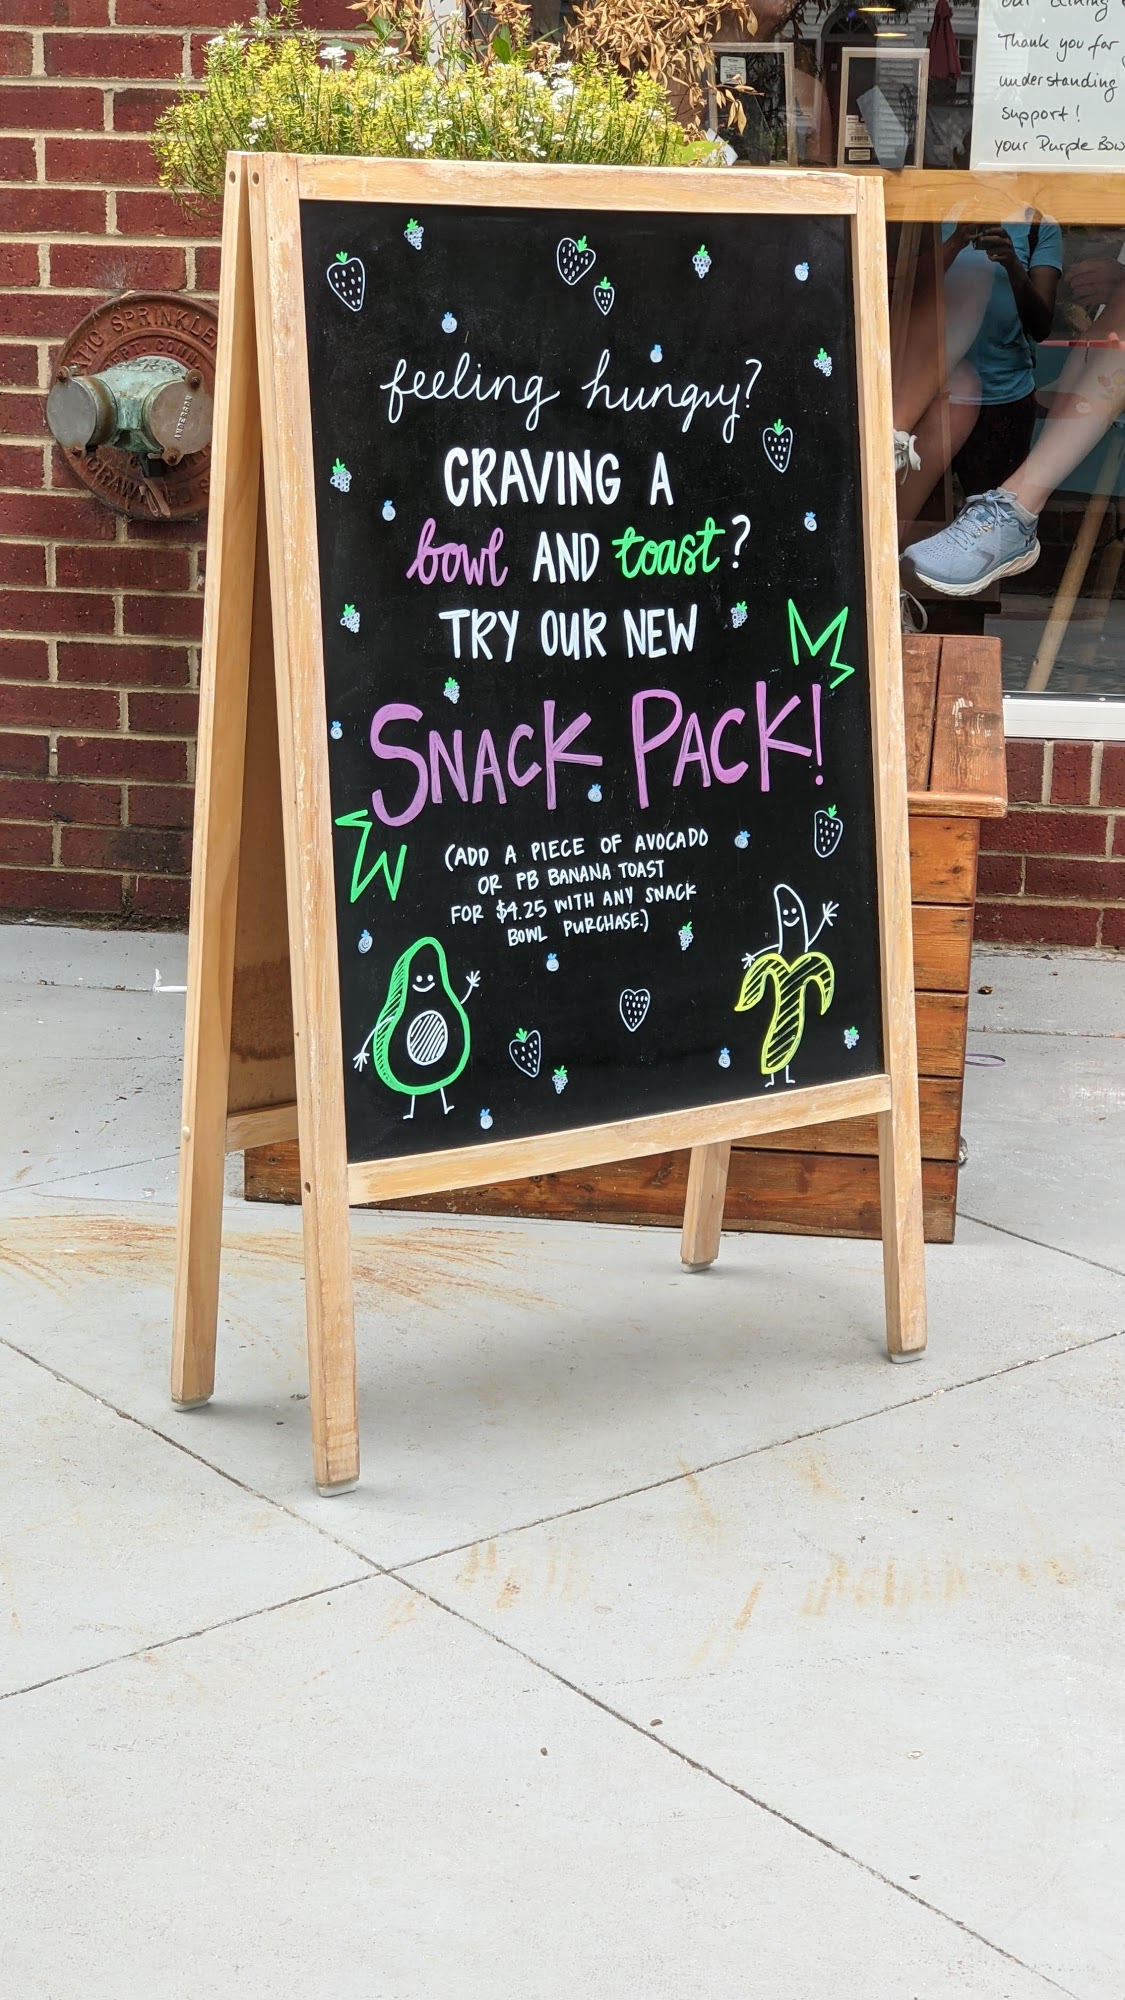 our dining
Thank you for
understanding
support!
your Purple Bow
feeling hungry?
CRAVING A
bowl AND toast?
TRY OUR NEW
SNACK PACK!
(ADD A PIECE OF AVOCADO
OR PB BANANA TOAST
FOR $4.25 WITH ANY SNACK
BOWL PURCHASE.)
SPRINKLE